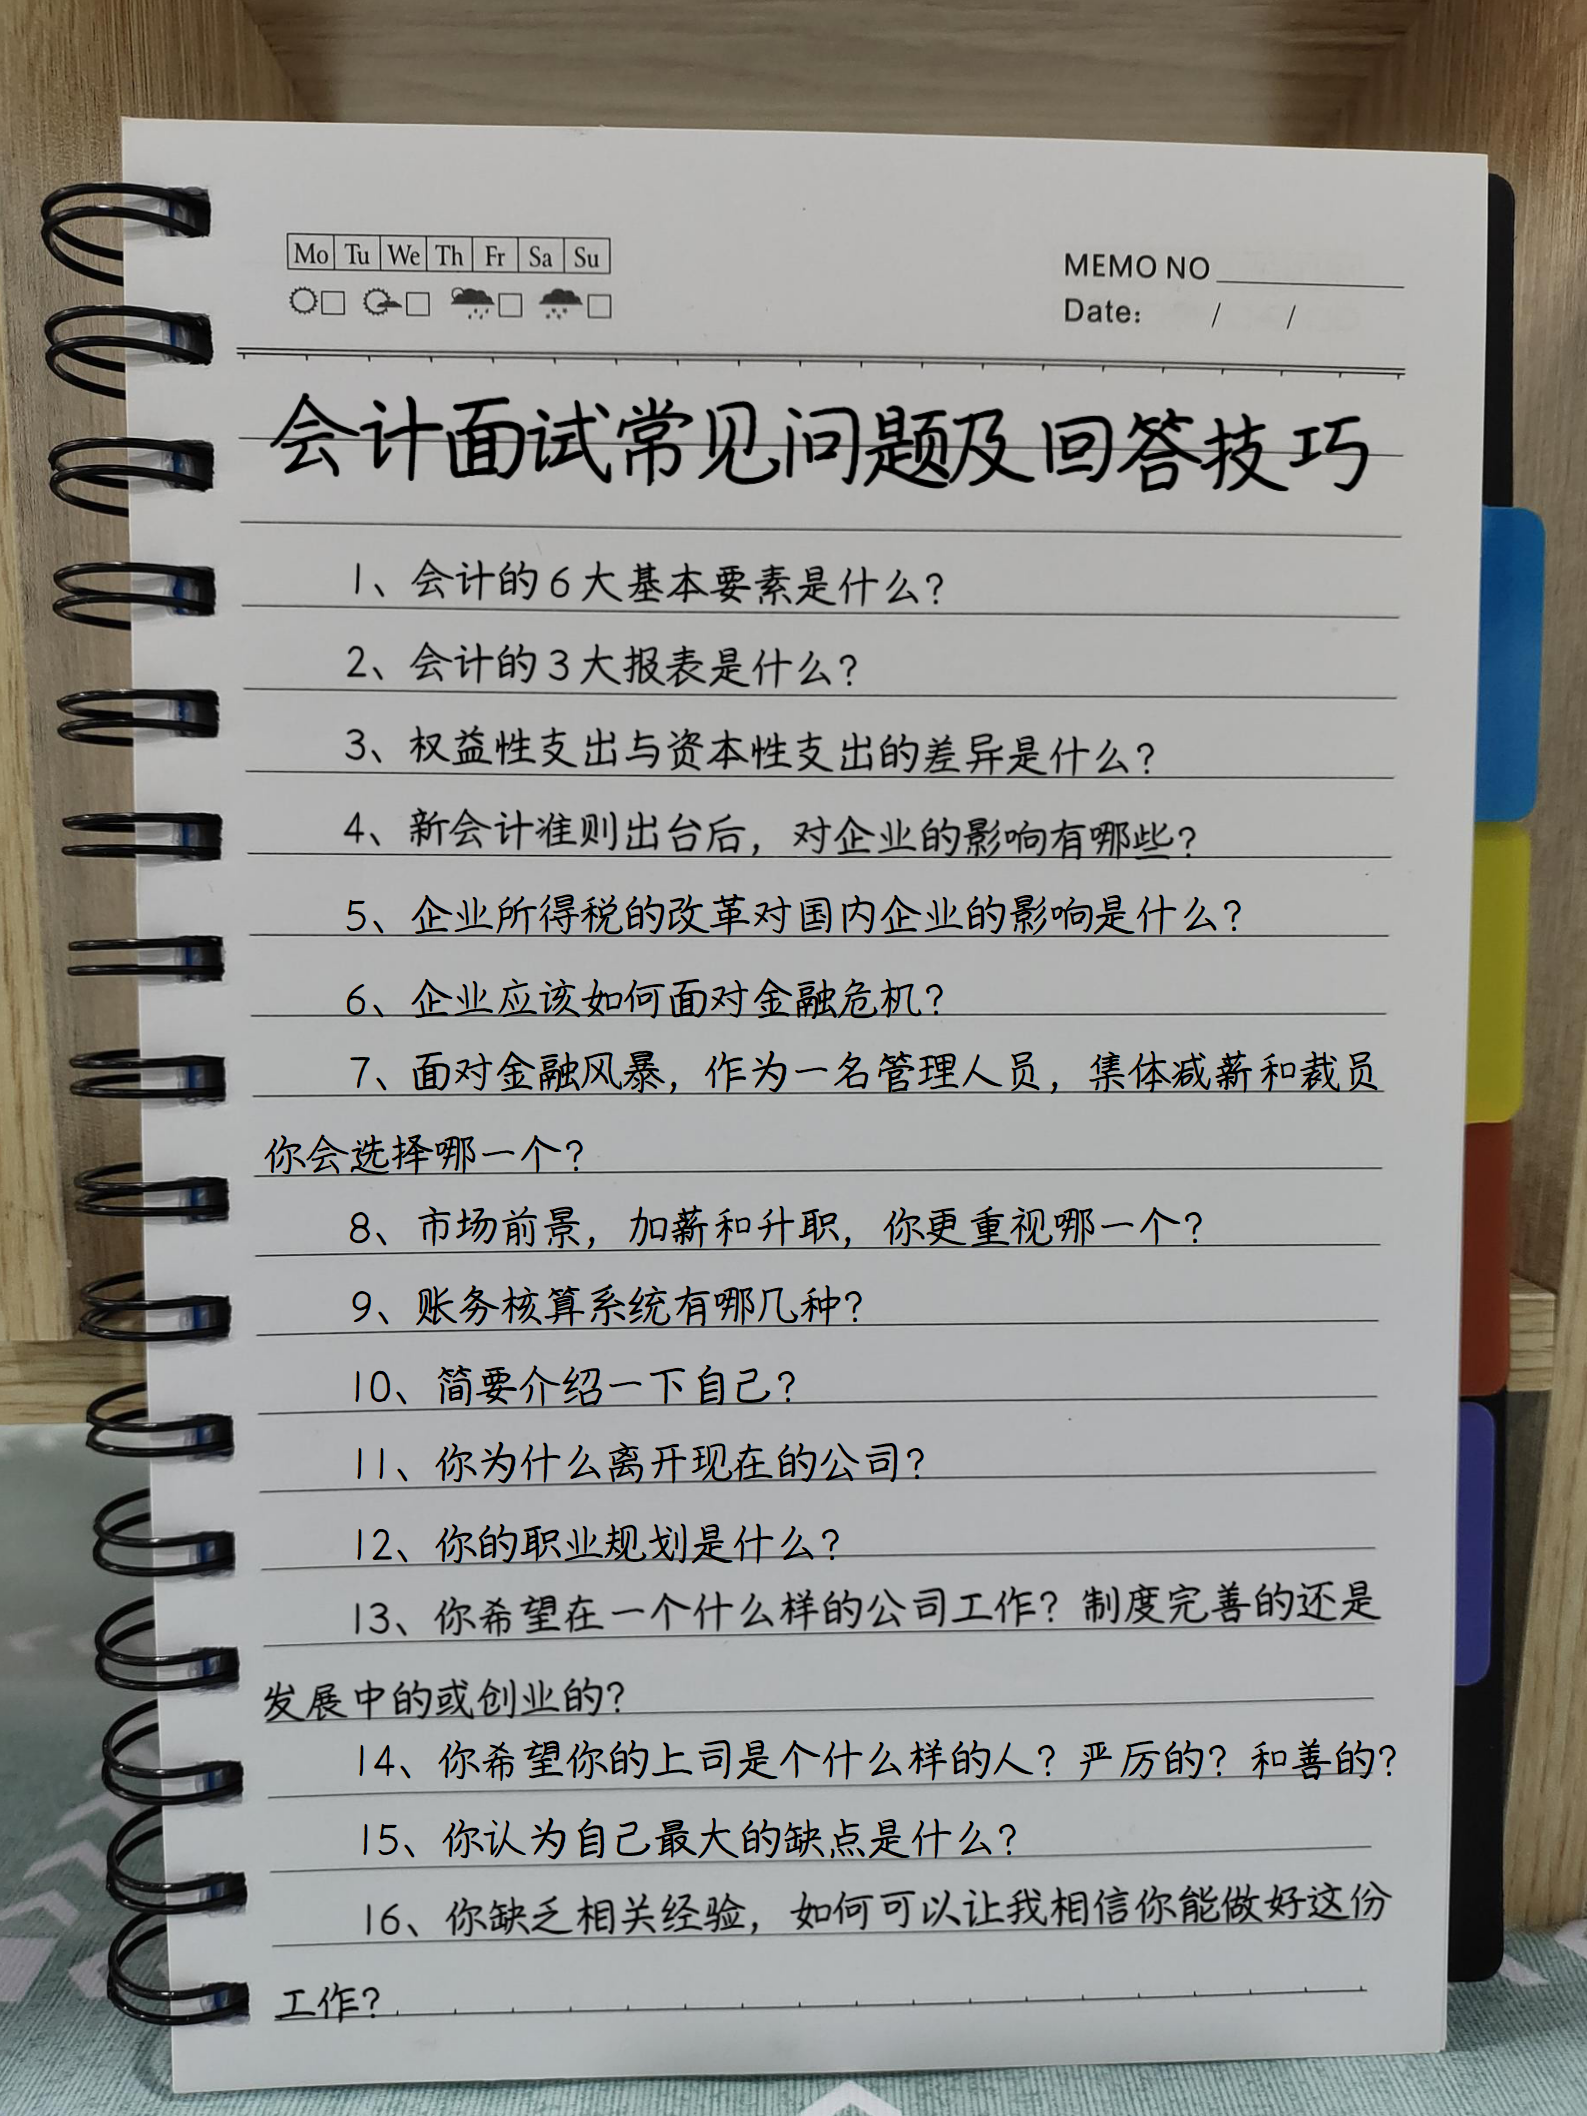 Mo Tu We Th Fr Sa Su
MEMO NO
Date: / /
会计面试常见问题及回答技巧
1、会计的6大基本要素是什么?
2、会计的3大报表是什么?
3、权益性支出与资本性支出的差异是什么?
4、新会计准则出台后，对企业的影响有哪些?
5、企业所得税的改革对国内企业的影响是什么?
6、企业应该如何面对金融危机?
7、面对金融风暴，作为一名管理人员，集体减薪和裁员
你会选择哪一个?
8、市场前景，加薪和升职，你更重视哪一个?
9、账务核算系统有哪几种?
10、简要介绍一下自己?
11、你为什么离开现在的公司?
12、你的职业规划是什么?
13、你希望在一个什么样的公司工作? 制度完善的还是
发展中的或创业的?
14、你希望你的上司是个什么样的人? 严厉的? 和善的?
15、你认为自己最大的缺点是什么?
16、你缺乏相关经验，如何可以让我相信你能做好这份
工作?